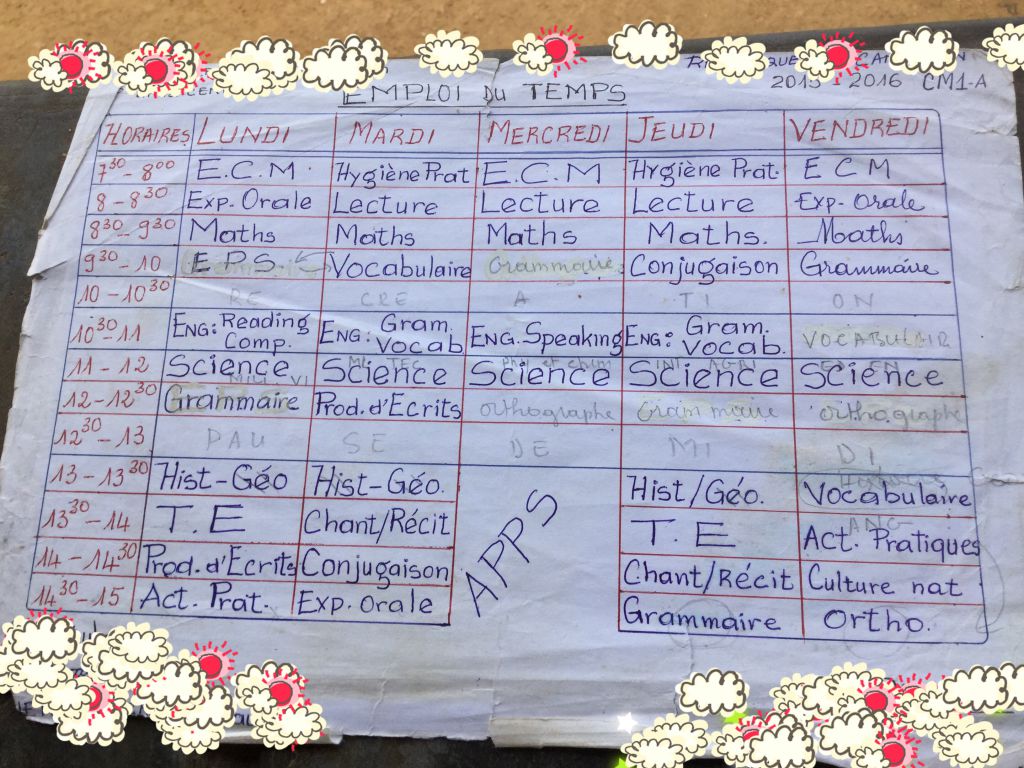 EMPLOI DU TEMPS
2015 - 2016 CM1-A
HORAIRES LUNDI MARDI MERCREDI JEUDI VENDREDI
7 30 - 8 00 E.C.M. Hygiène Prat E.C.M Hygiène Prat. E C M
8 - 8 30 Exp. Orale Lecture Lecture Lecture Exp. Orale
8 30 - 9 30 Maths Maths Maths Maths. Maths
9 30 - 10 E P S Vocabulaire Grammaire Conjugaison Grammaire
10 - 10 30 RE CRE A TI ON
10 30 - 11 ENG: Reading Comp. ENG: Gram. Vocab ENG. Speaking ENG: Gram. Vocab. VOCABULAIR
11 - 12 Science Science Science Science Science
12 - 12 30 Grammaire Prod. d'Ecrits Orthographe Grammaire Orthographe
12 30 - 13 PAU SE DE MI DI
13 - 13 30 Hist-Géo Hist-Géo. APPS Hist/Géo. Vocabulaire
13 30 - 14 T.E Chant/Récit T.E Act. Pratiques
14 - 14 30 Prod. d'Ecrits Conjugaison Chant/Récit Culture nat
14 30 - 15 Act. Prat. Exp. Orale Grammaire Ortho.